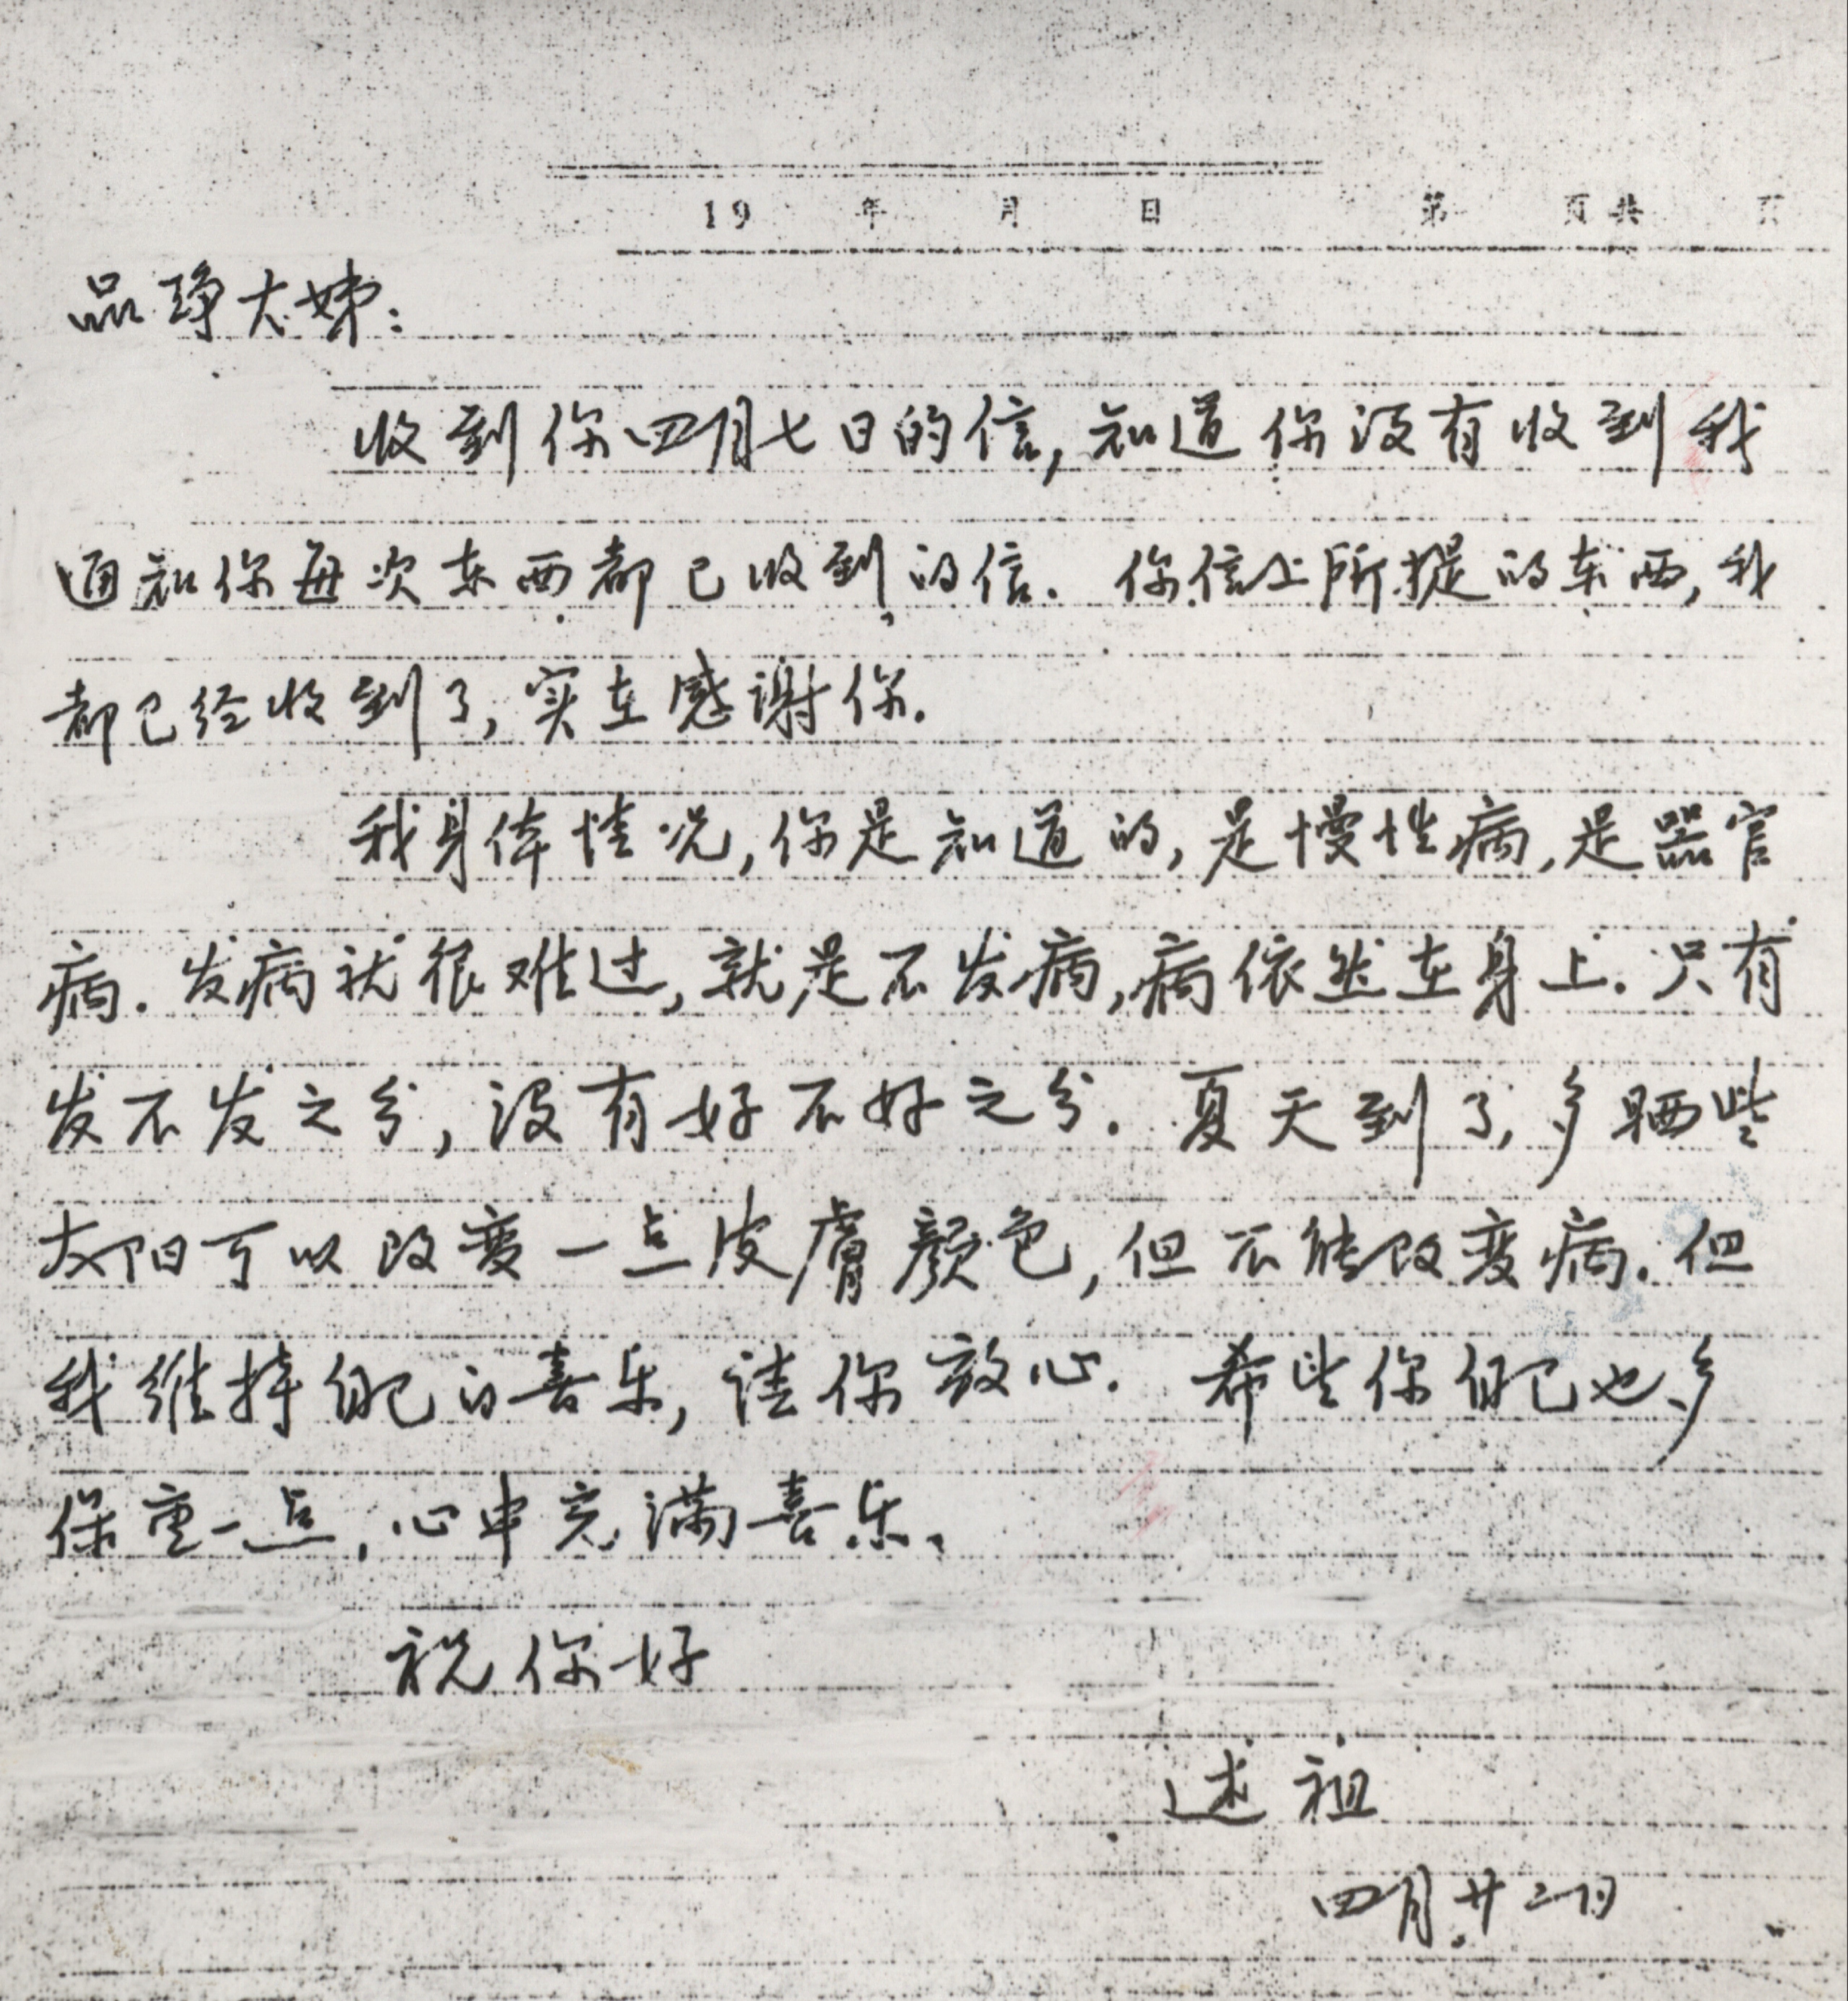 19 年 月 日 第 页共 页
品琤大姊：
收到你四月七日的信，知道你没有收到我
通知你每次东西都已收到的信．你信上所提的东西，我
都已经收到了，实在感谢你．
我身体情况，你是知道的，是慢性病，是器官
病．发病就很难过，就是不发病，病依然在身上．只有
发不发之分，没有好不好之分．夏天到了，多晒些
太阳可以改变一点皮膚顏色，但不能改变病．但
我维持自己的喜乐，请你放心．希望你自己也多
保重一点，心中充满喜乐、
祝你好
述祖
四月廿二日